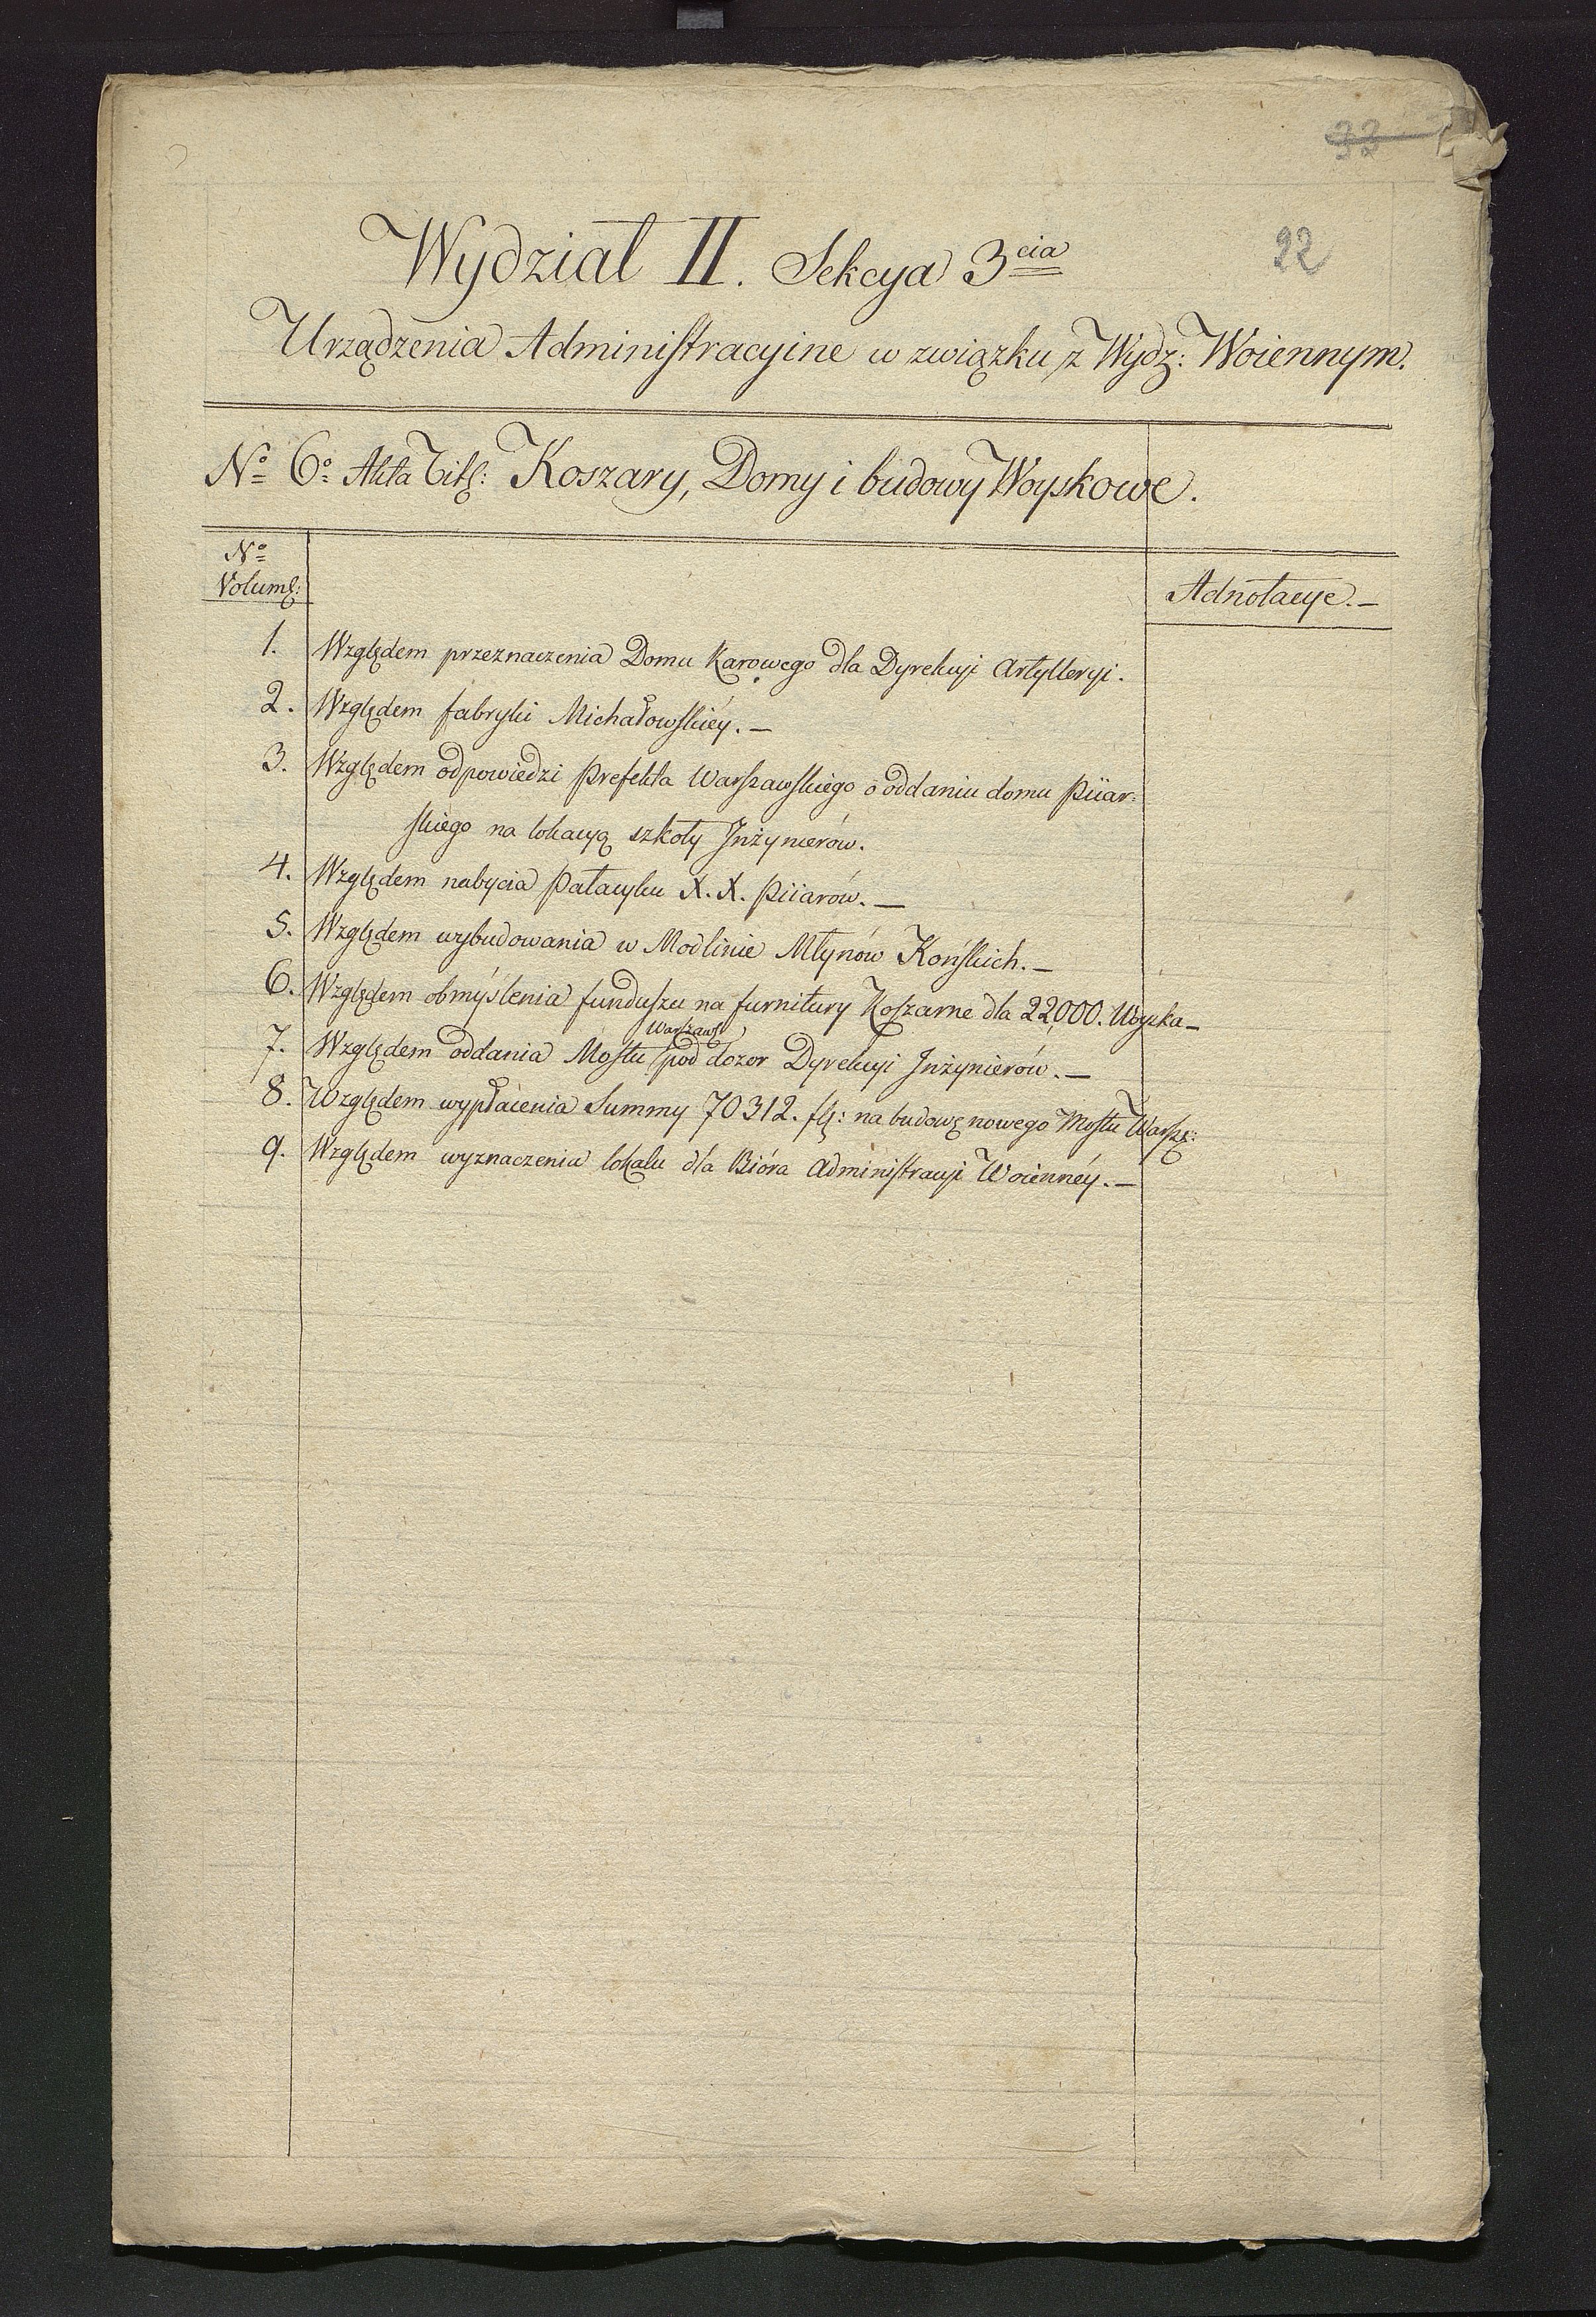 33
22
Wydział II. Sekcya 3cia
Urządzenia Administracyine w związku z Wydz: Woiennym.
No 6o Akta Tit: Koszary, Domy i budowy Woyskowe.
No
Volum:
Adnotacye.-
1. Względem przeznaczenia Domu Karowego dla Dyrekcyi Artylleryi.
2. Względem fabryki Michałowskiéy.-
3. Względem odpowiedzi Prefekta Warszawskiego o oddaniu domu Piiar-
skiego na lokacyą szkoły Inżynierów.
4. Względem nabycia Pałacyku X. X. Piiarów.-
5. Względem wybudowania w Modlinie Młynów Końskich.-
6. Względem obmyślenia funduszu na furnitury Koszarne dla 22,000. Woyska-
Warszaws:
7. Względem oddania Mostu pod dozor Dyrekcyi Inżynierów.-
8. Względem wypłacenia Summy 70312. fl: na budowę nowego Mostu Warsz:
9. Względem wyznaczenia lokalu dla Bióra Administracyi Woiennéy.-